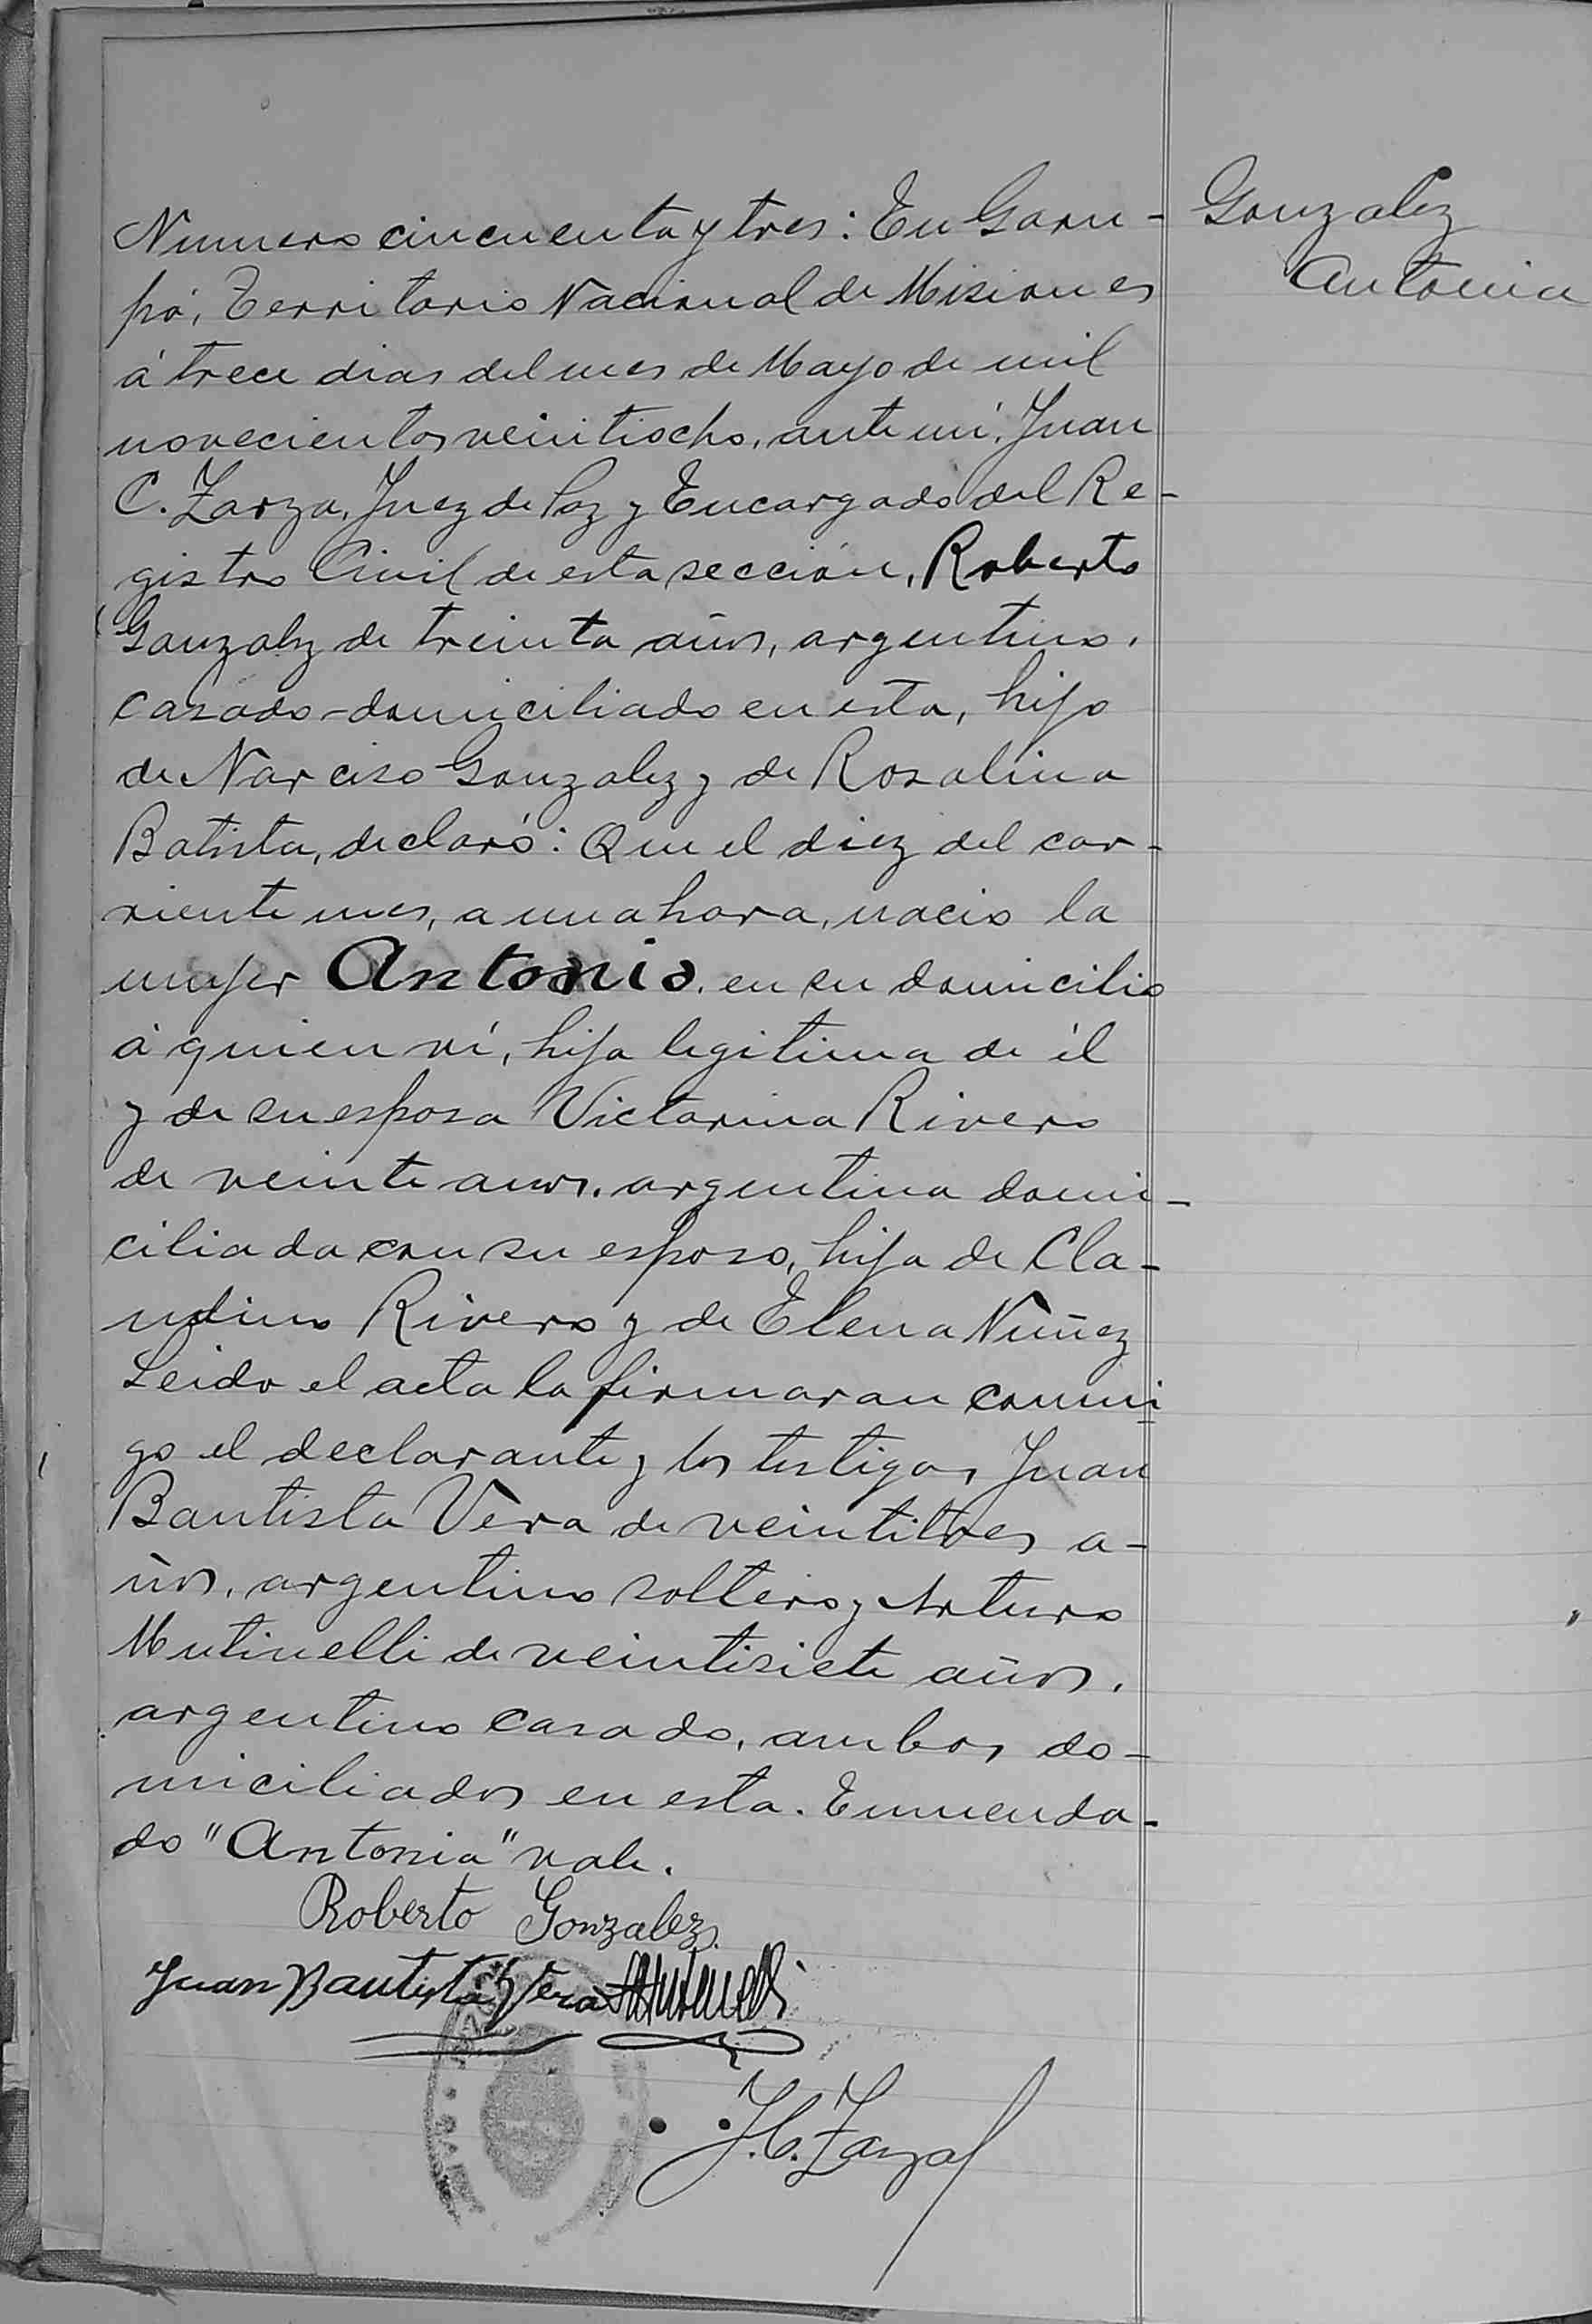 Gonzalez
Antonia
Numero cincuenta y tres: En Garu-
pá, Territorio Nacional de Misiones
á trece dias del mes de Mayo de mil
novecientos veintiocho, ante mi, Juan
C. Zarza, Juez de Paz y Encargado del Re-
gistro Civil de esta sección, Roberto
Gonzalez de treinta años, argentino,
casado-domiciliado en esta, hijo
de Narciso Gonzalez y de Rosalina
Batista, declaró: Que el diez del cor-
riente mes, a una hora, nacio la
mujer Antonia, en su domicilio
á quien ví, hija legitima de él
y de su esposa Victorina Rivero
de veinte anos, argentina domi-
ciliada con su esposo, hija de Cla-
udino Rivero y de Elena Nuñez
Leido el acta la firmaran conmi
go el declarante y los testigos, Juan
Bautista Vera de veintitres a-
ños, argentino soltero y Arturo
Mutinelli de veintisiete años,
argentino casado, ambos do-
miciliados en esta. Enmenda-
do "Antonia" vale.
Roberto Gonzalez
Juan Bautista Vera
J.C. Zarza